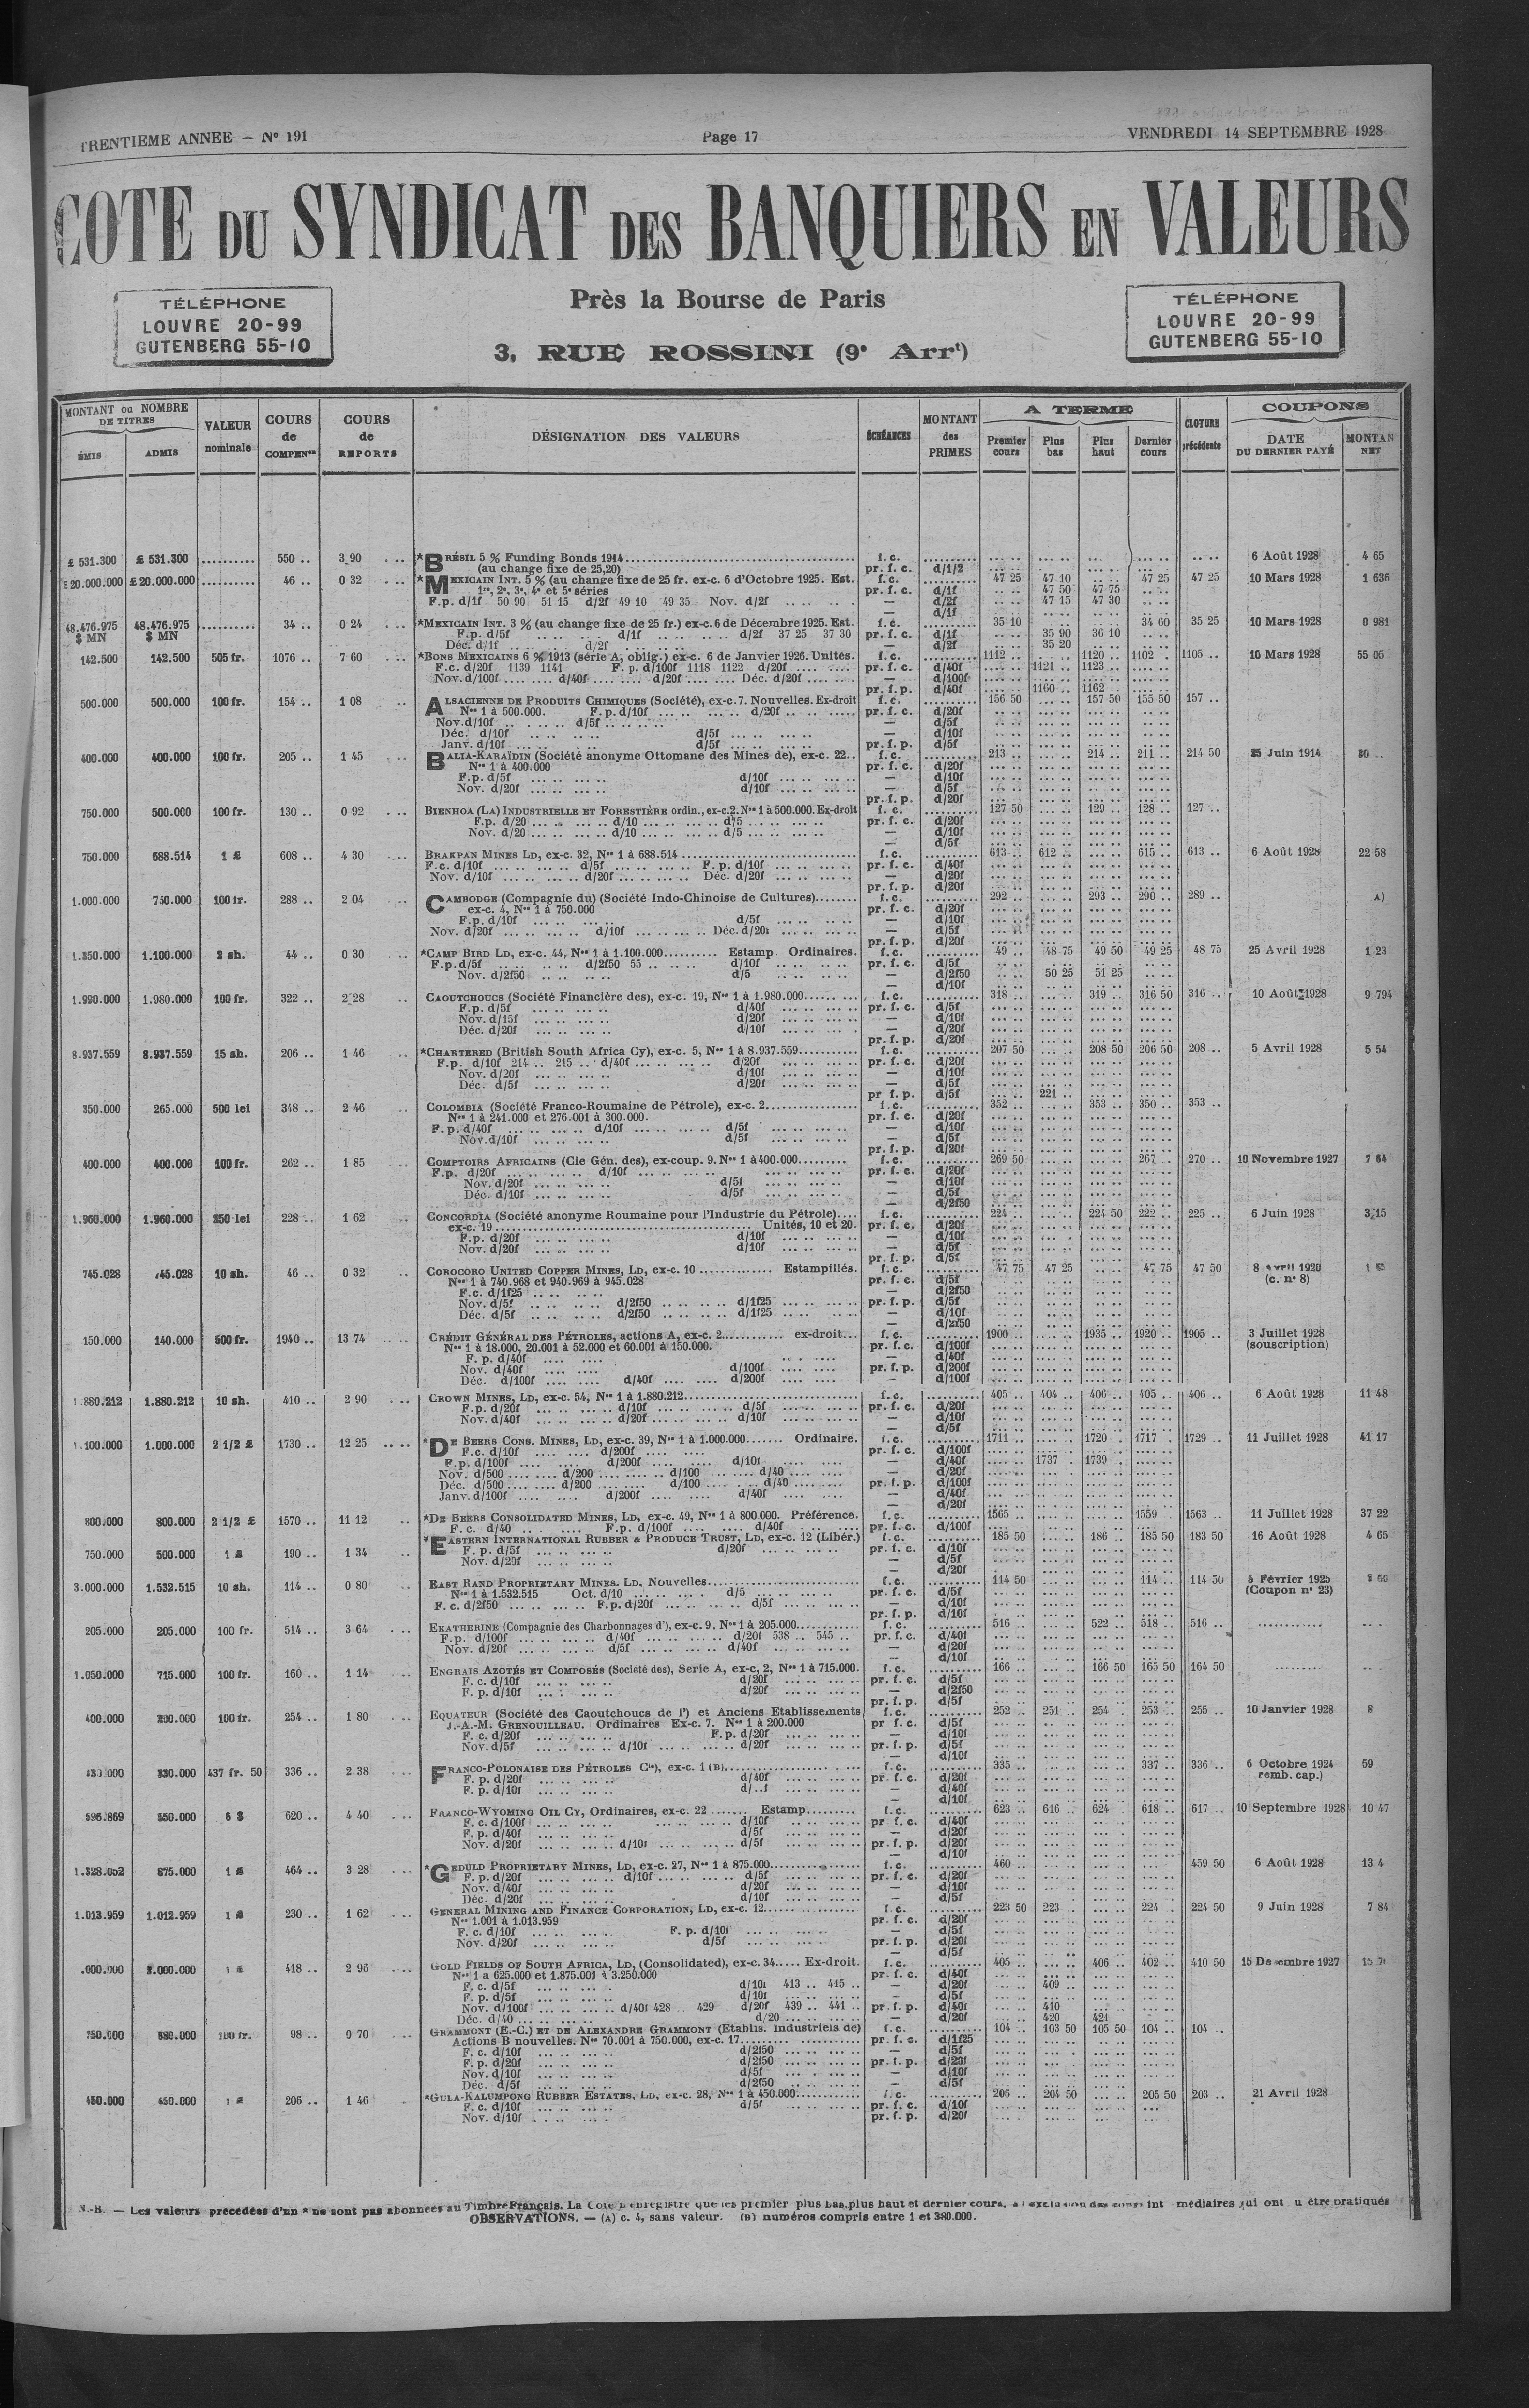 TRENTIEME ANNEE — N° 191
Page 17
VENDREDI 14 SEPTEMBRE 1928
COTE DU SYNDICAT DES BANQUIERS EN VALEURS
TÉLÉPHONE
LOUVRE 20-99
GUTENBERG 55-10
Près la Bourse de Paris
3, RUE ROSSINI (9e Arrt)
TÉLÉPHONE
LOUVRE 20-99
GUTENBERG 55-10
MONTANT ou NOMBRE DE TITRES
ÉMIS ADMIS
VALEUR nominale
COURS de COMPENon
COURS de REPORTS
DÉSIGNATION DES VALEURS
ÉCHÉANCES
MONTANT des PRIMES
A TERME
Premier cours Plus bas Plus haut Dernier cours
CLOTURE précédente
COUPONS
DATE DU DERNIER PAYÉ MONTAN NET
£ 531.300 £ 531.300 .......... 550 .. 3 90 *BRÉSIL 5 % Funding Bonds 1914 f. c. 6 Août 1928 4 65
(au change fixe de 25,20) pr. f. c. d/1/2
£ 20.000.000 £ 20.000.000 .......... 46 .. 0 32 *MEXICAIN INT. 5 % (au change fixe de 25 fr. ex-c. 6 d'Octobre 1925. Est. f. c. 47 25 47 10 .. .. 47 25 47 25 10 Mars 1928 1 636
1re, 2e, 3e, 4e et 5e séries pr. f. c. d/1f .. .. 47 50 47 75
F.p. d/1f 50 90 51 15 d/2f 49 10 49 35 Nov. d/2f — d/2f .. .. 47 15 47 30
— d/1f
48.476.975 $ MN 48.476.975 $ MN .......... 34 .. 0 24 *MEXICAIN INT. 3 % (au change fixe de 25 fr.) ex-c. 6 de Décembre 1925. Est. f. c. 35 10 34 60 35 25 10 Mars 1928 0 981
F.p. d/5f d/1f d/2f 37 25 37 30 pr. f. c. d/1f 35 90 36 10
Déc. d/1f d/2f — d/2f 35 20
142.500 142.500 505 fr. 1076 .. 7 60 *BONS MEXICAINS 6 % 1913 (série A, oblig.) ex-c. 6 de Janvier 1926. Unités. f. c. 1112 .. 1120 .. 1102 . 1105 .. 10 Mars 1928 55 05
F.c. d/20f 1139 1141 F. p. d/100f 1118 1122 d/20f pr. f. c. d/40f 1121 .. 1123 ..
Nov. d/100f d/40f d/20f Déc. d/20f — d/100f
pr. f. p. d/40f 1160 .. 1162
500.000 500.000 100 fr. 154 .. 1 08 ALSACIENNE DE PRODUITS CHIMIQUES (Société), ex-c. 7. Nouvelles. Ex-droit f. c. 156 50 157 50 155 50 157 ..
Nos 1 à 500.000. F.p. d/10f d/20f pr. f. c. d/20f
Nov. d/10f d/5f — d/5f
Déc. d/10f d/5f — d/10f
Janv. d/10f d/5f pr. f. p. d/5f
400.000 400.000 100 fr. 205 .. 1 45 BALIA-KARAÏDIN (Société anonyme Ottomane des Mines de), ex-c. 22.. f. c. 213 .. 214 .. 211 .. 214 50 25 Juin 1914
Nos 1 à 400.000 pr. f. c. d/20f
F.p. d/5f d/10f — d/10f
Nov. d/20f d/10f — d/5f
pr. f. p. d/20f
750.000 500.000 100 fr. 130 .. 0 92 BIENHOA (LA) INDUSTRIELLE ET FORESTIÈRE ordin., ex-c. 2. Nos 1 à 500.000. Ex-droit f. c. 127 50 129 .. 128 .. 127 ..
F.p. d/20 d/10 d/5 pr. f. c. d/20f
Nov. d/20 d/10 d/5 — d/10f
— d/5f
750.000 688.514 1 £ 608 .. 4 30 BRAKPAN MINES LD, ex-c. 32, Nos 1 à 688.514 f. c. 613 .. 612 .. 615 .. 613 .. 6 Août 1928 22 58
F.c. d/10f d/5f F. p. d/10f pr. f. c. d/40f
Nov. d/10f d/20f Déc. d/20f — d/20f
pr. f. p. d/20f
1.000.000 750.000 100 fr. 288 .. 2 04 CAMBODGE (Compagnie du) (Société Indo-Chinoise de Cultures) f. c. 292 .. 293 .. 290 .. 289 .. A)
ex-c. 4, Nos 1 à 750.000 pr. f. c. d/20f
F.p. d/10f d/5f — d/10f
Nov. d/20f d/10f Déc. d/20f — d/5f
pr. f. p. d/20f
1.350.000 1.100.000 2 sh. 44 .. 0 30 *CAMP BIRD LD, ex-c. 44, Nos 1 à 1.100.000 Estamp. Ordinaires. f. c. 49 .. 48 75 49 50 49 25 48 75 25 Avril 1928 1 23
F.p. d/5f d/2f50 55 .. d/10f pr. f. c. d/5f
Nov. d/2f50 d/5 — d/2f50 50 25 51 25
— d/10f
1.990.000 1.980.000 100 fr. 322 .. 2 28 CAOUTCHOUCS (Société Financière des), ex-c. 19, Nos 1 à 1.980.000 f. c. 318 .. 319 .. 316 50 316 .. 10 Août 1928 9 794
F.p. d/5f d/40f pr. f. c. d/5f
Nov. d/15f d/20f — d/10f
Déc. d/20f d/10f — d/20f
pr. f. p. d/20f
8.937.559 8.937.559 15 sh. 206 .. 1 46 *CHARTERED (British South Africa Cy), ex-c. 5, Nos 1 à 8.937.559 f. c. 207 50 208 50 206 50 208 .. 5 Avril 1928 5 54
F.p. d/10f 214 .. 215 .. d/40f d/20f pr. f. c. d/20f
Nov. d/20f d/10f — d/10f
Déc. d/5f d/20f — d/5f
pr f. p. d/5f 221 ..
350.000 265.000 500 lei 348 .. 2 46 COLOMBIA (Société Franco-Roumaine de Pétrole), ex-c. 2 f. c. 352 .. 353 .. 350 .. 353 ..
Nos 1 à 241.000 et 276.001 à 300.000. pr. f. c. d/20f
F.p. d/40f d/10f d/5f — d/10f
Nov. d/10f d/5f — d/5f
pr. f. p. d/20f
400.000 400.000 100 fr. 262 .. 1 85 COMPTOIRS AFRICAINS (Cie Gén. des), ex-coup. 9. Nos 1 à 400.000 f. c. 269 50 267 .. 270 .. 10 Novembre 1927 7 64
F.p. d/20f d/10f pr. f. c. d/20f
Nov. d/20f d/5f — d/10f
Déc. d/10f d/5f — d/5f
— d/2f50
1.960.000 1.960.000 250 lei 228 .. 1 62 CONCORDIA (Société anonyme Roumaine pour l'Industrie du Pétrole) f. c. 224 .. 224 50 222 .. 225 .. 6 Juin 1928 3 15
ex-c. 19 Unités, 10 et 20. pr. f. c. d/20f
F.p. d/20f d/10f — d/10f
Nov. d/20f d/10f — d/5f
pr. f. p. d/5f
745.028 745.028 10 sh. 46 .. 0 32 COROCORO UNITED COPPER MINES, LD, ex-c. 10 Estampillés. f. c. 47 75 47 25 47 75 47 50 8 Avril 1920
Nos 1 à 740.968 et 940.969 à 945.028 pr. f. c. d/5f (c. n° 8)
F.c. d/1f25 — d/2f50
Nov. d/5f d/2f50 d/1f25 pr. f. p. d/5f
Déc. d/5f d/2f50 d/1f25 — d/10f
— d/2f50
150.000 140.000 500 fr. 1940 .. 13 74 CRÉDIT GÉNÉRAL DES PÉTROLES, actions A, ex-c. 2 ex-droit f. c. 1900 .. 1935 .. 1920 .. 1905 .. 3 Juillet 1928
Nos 1 à 18.000, 20.001 à 52.000 et 60.001 à 150.000. pr. f. c. d/100f (souscription)
F. p. d/40f — d/40f
Nov. d/40f d/100f pr. f. p. d/200f
Déc. d/100f d/40f d/200f — d/100f
1.880.212 1.880.212 10 sh. 410 .. 2 90 CROWN MINES, LD, ex-c. 54, Nos 1 à 1.880.212 f. c. 405 .. 404 .. 406 .. 405 .. 406 .. 6 Août 1928 11 48
F.p. d/20f d/10f d/5f pr. f. c. d/20f
Nov. d/40f d/20f d/10f — d/10f
— d/5f
1.100.000 1.000.000 2 1/2 £ 1730 .. 12 25 *DE BEERS CONS. MINES, LD, ex-c. 39, Nos 1 à 1.000.000 Ordinaire. f. c. 1711 .. 1720 . 1717 . 1729 .. 11 Juillet 1928 41 17
F.c. d/10f d/200f pr. f. c. d/100f
F.p. d/100f d/200f d/10f — d/40f 1737 . 1739 .
Nov. d/500 d/200 d/100 d/40 — d/20f
Déc. d/500 d/200 d/100 d/40 pr. f. p. d/100f
Janv. d/100f d/200f d/40f — d/40f
— d/20f
800.000 800.000 2 1/2 £ 1570 .. 11 12 *DE BEERS CONSOLIDATED MINES, LD, ex-c. 49, Nos 1 à 800.000. Préférence. f. c. 1565 .. 1559 . 1563 .. 11 Juillet 1928 37 22
F. c. d/40 F.p. d/100f d/40f pr. f. c. d/100f
750.000 500.000 1 £ 190 .. 1 34 *EASTERN INTERNATIONAL RUBBER & PRODUCE TRUST, LD, ex-c. 12 (Libér.) f. c. 185 50 186 .. 185 50 183 50 16 Août 1928 4 65
F. p. d/5f d/20f pr. f. c. d/10f
Nov. d/20f — d/5f
— d/20f
3.000.000 1.532.515 10 sh. 114 .. 0 80 EAST RAND PROPRIETARY MINES. LD. Nouvelles f. c. 114 50 114 .. 114 50 Février 1925
Nos 1 à 1.532.515 Oct. d/10 d/5 pr. f. c. d/5f (Coupon n° 23)
F. c. d/2f50 F.p. d/20f d/5f — d/10f
pr. f. p. d/10f
205.000 205.000 100 fr. 514 .. 3 64 EKATHERINE (Compagnie des Charbonnages d'), ex-c. 9. Nos 1 à 205.000 f. c. 516 .. 522 .. 518 .. 516 ..
F.p. d/100f d/40f d/20f 538 .. 545 .. pr. f. c. d/40f
Nov. d/20f d/5f d/40f — d/20f
— d/10f
1.050.000 715.000 100 fr. 160 .. 1 14 ENGRAIS AZOTÉS ET COMPOSÉS (Société des), Serie A, ex-c, 2, Nos 1 à 715.000. f. c. 166 .. 166 50 165 50 164 50
F. c. d/10f d/20f pr. f. c. d/5f
F. p. d/10f d/20f — d/2f50
pr. f. p. d/5f
400.000 200.000 100 fr. 254 .. 1 80 EQUATEUR (Société des Caoutchoucs de l') et Anciens Etablissements f. c. 252 .. 251 .. 254 . 253 .. 255 .. 10 Janvier 1928 8
J.-A.-M. GRENOUILLEAU. Ordinaires Ex-c. 7. Nos 1 à 200.000 pr f. c. d/5f
F. c. d/20f F.p. d/20f — d/10f
Nov. d/5f d/10f d/20f pr. f. p. d/5f
— d/10f
330.000 437 fr. 50 336 .. 2 38 FRANCO-POLONAISE DES PÉTROLES Cie), ex-c. 1 (B) f. c. 335 .. 337 .. 336 .. 6 Octobre 1924 59
F. p. d/20f d/40f pr. f. c. d/20f remb. cap.)
F. p. d/10f — d/40f
— d/10f
596.869 550.000 5 $ 620 .. 4 40 FRANCO-WYOMING OIL CY, Ordinaires, ex-c. 22 Estamp. f. c. 623 .. 616 .. 624 . 618 .. 617 .. 10 Septembre 1928 10 47
F. c. d/100f d/10f pr f. c. d/40f
F. p. d/40f d/5f — d/20f
Nov. d/20f d/10f d/5f pr. f. p. d/20f
— d/10f
1.328.052 875.000 1 £ 464 .. 3 28 *GEDULD PROPRIETARY MINES, LD, ex-c. 27, Nos 1 à 875.000 f. c. 460 .. 459 50 6 Août 1928 13 4
F. p. d/20f d/10f d/5f pr. f. c. d/20f
Nov. d/40f d/20f — d/10f
Déc. d/20f d/10f — d/5f
1.013.959 1.012.959 1 £ 230 .. 1 62 GENERAL MINING AND FINANCE CORPORATION, LD, ex-c. 12 f. c. 223 50 223 .. 224 . 224 50 9 Juin 1928 7 84
Nos 1.001 à 1.013.959 pr. f. c. d/20f
F. c. d/10f F. p. d/10f — d/5f
Nov. d/20f d/5f pr. f. p. d/20f
— d/5f
.000.000 2.000.000 1 £ 418 .. 2 96 GOLD FIELDS OF SOUTH AFRICA, LD, (Consolidated), ex-c. 34 Ex-droit. f. c. 405 .. 406 .. 402 .. 410 50 15 Décembre 1927
Nos 1 a 625.000 et 1.875.001 à 3.250.000 pr. f. c. d/40f
F. c. d/5f d/10f 413 .. 415 .. — d/20f 409 ..
F. p. d/5f d/10f — d/5f
Nov. d/100f d/40f 428 .. 429 d/20f 439 .. 441 .. pr. f. p. d/40f 410
Déc. d/40 d/20 — d/20f 420 421
750.000 580.000 100 fr. 98 .. 0 70 GRAMMONT (E.-C.) ET DE ALEXANDRE GRAMMONT (Etablis. Industriels de) f. c. 104 .. 103 50 105 50 104 .. 104 ..
Actions B nouvelles. Nos 70.001 à 750.000, ex-c. 17 pr. f. c. d/1f25
F. c. d/10f d/2f50 — d/5f
F. p. d/20f d/2f50 pr. f. p. d/20f
Nov. d/10f d/5f — d/10f
Déc. d/5f d/2f50 — d/5f
450.000 450.000 1 £ 206 .. 1 46 *GULA-KALUMPONG RUBBER ESTATES, LD, ex-c. 28, Nos 1 à 450.000 f. c. 206 .. 204 50 205 50 203 .. 21 Avril 1928
F. c. d/10f d/5f pr. f. c. d/10f
Nov. d/10f pr. f. p. d/20f
N.-B. — Les valeurs précédées d'un * ne sont pas abonnées au Timbre Français. La Cote n'enregistre que les premier plus bas, plus haut et dernier cours, à l'exclusion des cours int médiaires qui ont u être pratiqués
OBSERVATIONS. — (A) c. 4, sans valeur. (B) numéros compris entre 1 et 380.000.